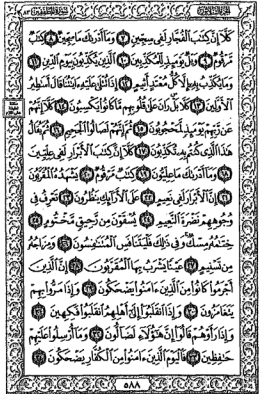 كَلَّا إِنَّ كِتَٰبَ ٱلْفُجَّارِ لَفِى سِجِّينٍ ٧ وَمَآ أَدْرَىٰكَ مَا سِجِّينٌ ٨ كِتَٰبٌ
مَّرْقُومٌ ٩ وَيْلٌ يَوْمَئِذٍ لِّلْمُكَذِّبِينَ ١٠ ٱلَّذِينَ يُكَذِّبُونَ بِيَوْمِ ٱلدِّينِ ١١
وَمَا يُكَذِّبُ بِهِۦٓ إِلَّا كُلُّ مُعْتَدٍ أَثِيمٍ ١٢ إِذَا تُتْلَىٰ عَلَيْهِ ءَايَٰتُنَا قَالَ أَسَٰطِيرُ
ٱلْأَوَّلِينَ ١٣ كَلَّا بَلْ رَانَ عَلَىٰ قُلُوبِهِم مَّا كَانُوا۟ يَكْسِبُونَ ١٤ كَلَّآ إِنَّهُمْ
عَن رَّبِّهِمْ يَوْمَئِذٍ لَّمَحْجُوبُونَ ١٥ ثُمَّ إِنَّهُمْ لَصَالُوا۟ ٱلْجَحِيمِ ١٦ ثُمَّ يُقَالُ
هَٰذَا ٱلَّذِى كُنتُم بِهِۦ تُكَذِّبُونَ ١٧ كَلَّآ إِنَّ كِتَٰبَ ٱلْأَبْرَارِ لَفِى عِلِّيِّينَ
١٨ وَمَآ أَدْرَىٰكَ مَا عِلِّيُّونَ ١٩ كِتَٰبٌ مَّرْقُومٌ ٢٠ يَشْهَدُهُ ٱلْمُقَرَّبُونَ
٢١ إِنَّ ٱلْأَبْرَارَ لَفِى نَعِيمٍ ٢٢ عَلَى ٱلْأَرَآئِكِ يَنظُرُونَ ٢٣ تَعْرِفُ فِى
وُجُوهِهِمْ نَضْرَةَ ٱلنَّعِيمِ ٢٤ يُسْقَوْنَ مِن رَّحِيقٍ مَّخْتُومٍ ٢٥
خِتَٰمُهُۥ مِسْكٌ وَفِى ذَٰلِكَ فَلْيَتَنَافَسِ ٱلْمُتَنَٰفِسُونَ ٢٦ وَمِزَاجُهُۥ
مِن تَسْنِيمٍ ٢٧ عَيْنًا يَشْرَبُ بِهَا ٱلْمُقَرَّبُونَ ٢٨ إِنَّ ٱلَّذِينَ
أَجْرَمُوا۟ كَانُوا۟ مِنَ ٱلَّذِينَ ءَامَنُوا۟ يَضْحَكُونَ ٢٩ وَإِذَا مَرُّوا۟ بِهِمْ
يَتَغَامَزُونَ ٣٠ وَإِذَا ٱنقَلَبُوٓا۟ إِلَىٰٓ أَهْلِهِمُ ٱنقَلَبُوا۟ فَكِهِينَ ٣١
وَإِذَا رَأَوْهُمْ قَالُوٓا۟ إِنَّ هَٰٓؤُلَآءِ لَضَآلُّونَ ٣٢ وَمَآ أُرْسِلُوا۟ عَلَيْهِمْ
حَٰفِظِينَ ٣٣ فَٱلْيَوْمَ ٱلَّذِينَ ءَامَنُوا۟ مِنَ ٱلْكُفَّارِ يَضْحَكُونَ ٣٤
٥٨٨